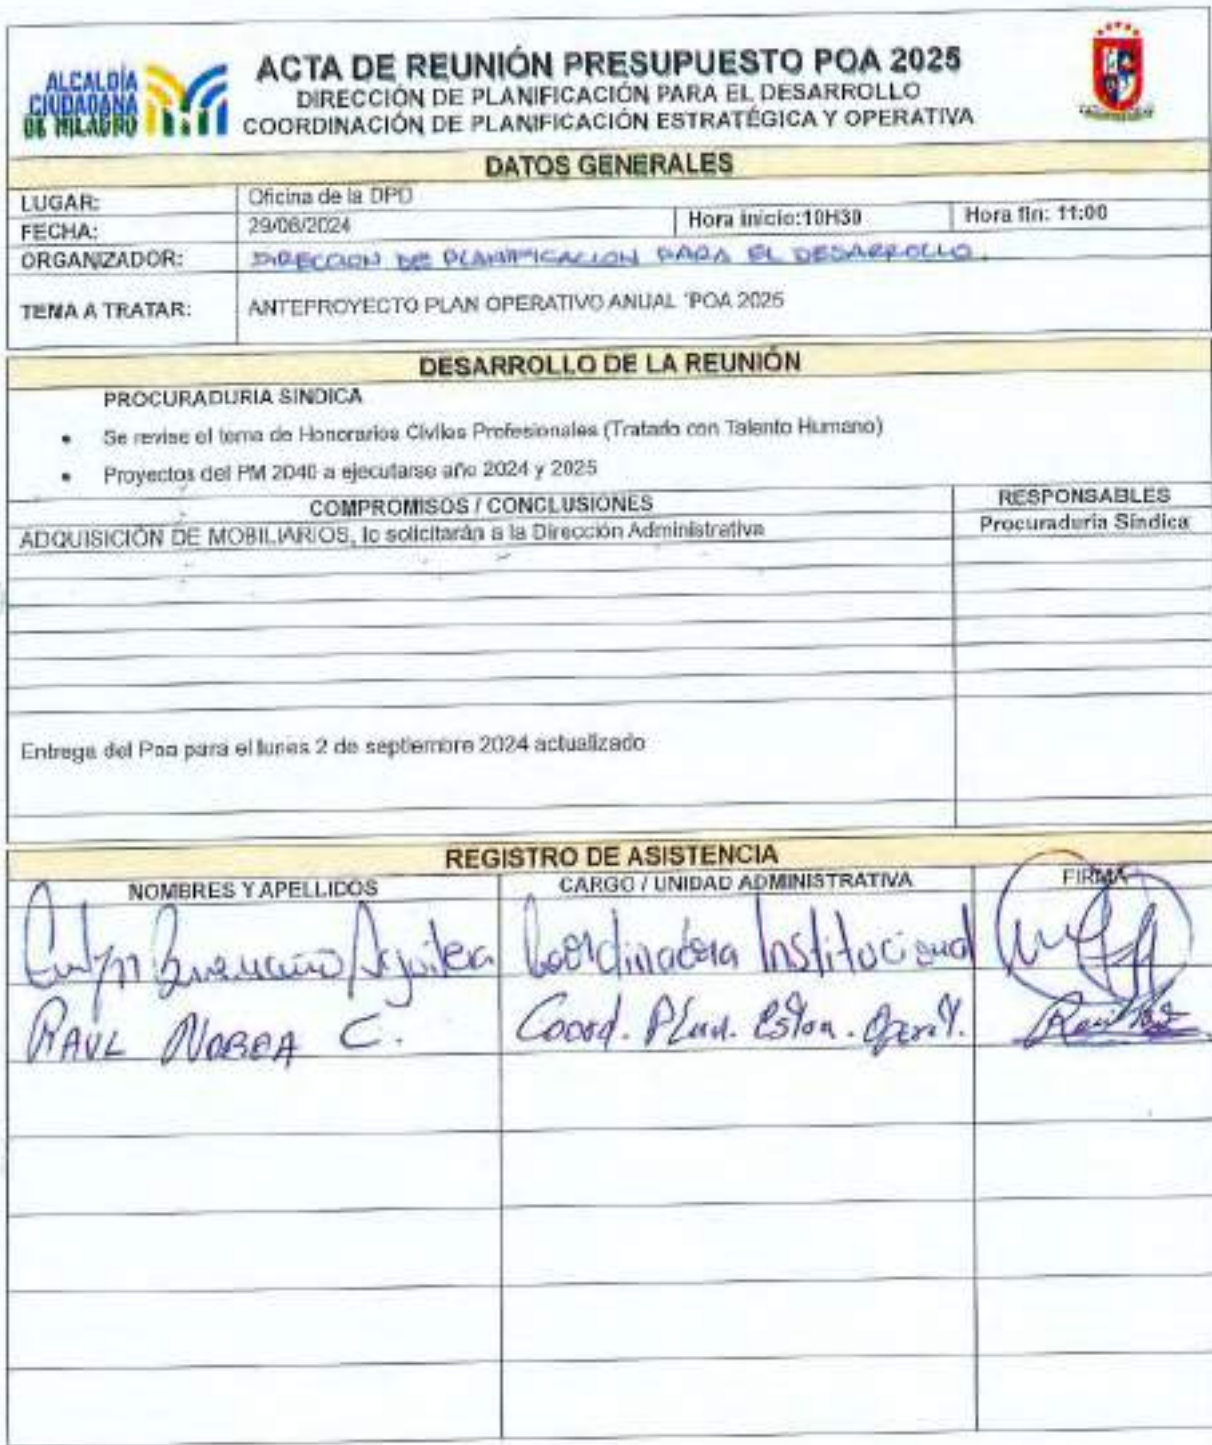 ALCALDÍA
CIUDADANA
DE MILAGRO
ACTA DE REUNIÓN PRESUPUESTO POA 2025
DIRECCIÓN DE PLANIFICACIÓN PARA EL DESARROLLO
COORDINACIÓN DE PLANIFICACIÓN ESTRATÉGICA Y OPERATIVA
DATOS GENERALES
LUGAR: Oficina de la DPD
FECHA: 29/08/2024 Hora inicio:10H30 Hora fin: 11:00
ORGANIZADOR: DIRECCION DE PLANIFICACION PARA EL DESARROLLO.
TEMA A TRATAR: ANTEPROYECTO PLAN OPERATIVO ANUAL "POA 2025
DESARROLLO DE LA REUNIÓN
PROCURADURIA SINDICA
• Se revise el tema de Honorarios Civiles Profesionales (Tratado con Talento Humano)
• Proyectos del PM 2040 a ejecutarse año 2024 y 2025
COMPROMISOS / CONCLUSIONES RESPONSABLES
ADQUISICIÓN DE MOBILIARIOS, lo solicitarán a la Dirección Administrativa Procuraduria Sindica
Entrega del Poa para el lunes 2 de septiembre 2024 actualizado
REGISTRO DE ASISTENCIA
NOMBRES Y APELLIDOS CARGO / UNIDAD ADMINISTRATIVA FIRMA
Aguilera Coordinadora Institucional
RAUL NOBOA C. Coord. Plan.